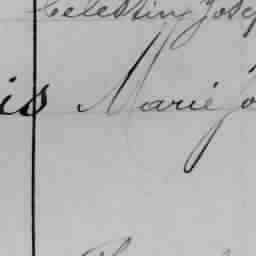 Celestin Josep
is Marie Jo